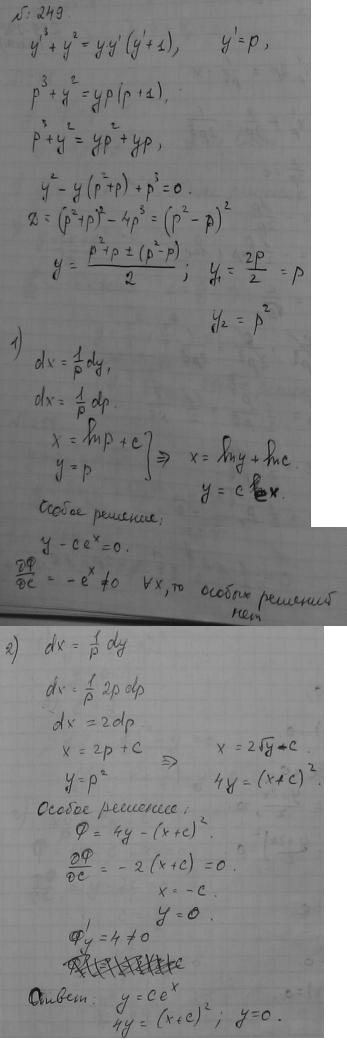 №: 249.
y'³ + y² = yy'(y'+1), y' = p,
p³ + y² = yp(p+1),
p³ + y² = yp² + yp,
y² - y(p²+p) + p³ = 0.
D = (p²+p)² - 4p³ = (p² - p)²
y = (p²+p ± (p²-p))/2 ; y₁ = 2p/2 = p
y₂ = p²
1)
dx = 1/p dy,
dx = 1/p dp.
x = ln p + c
y = p ⇒ x = ln y + ln c.
y = c e^x.
Особое решение:
y - ce^x = 0.
∂Φ/∂c = -e^x ≠ 0 ∀x, то особых решений
нет
2) dx = 1/p dy
dx = 1/p 2p dp
dx = 2dp
x = 2p + c ⇒ x = 2√y + c.
y = p² 4y = (x+c)².
Особое решение:
Φ = 4y - (x+c)².
∂Φ/∂c = -2(x+c) = 0.
x = -c.
y = 0.
Φ'y = 4 ≠ 0
Ответ: y = ce^x
4y = (x+c)² ; y = 0.